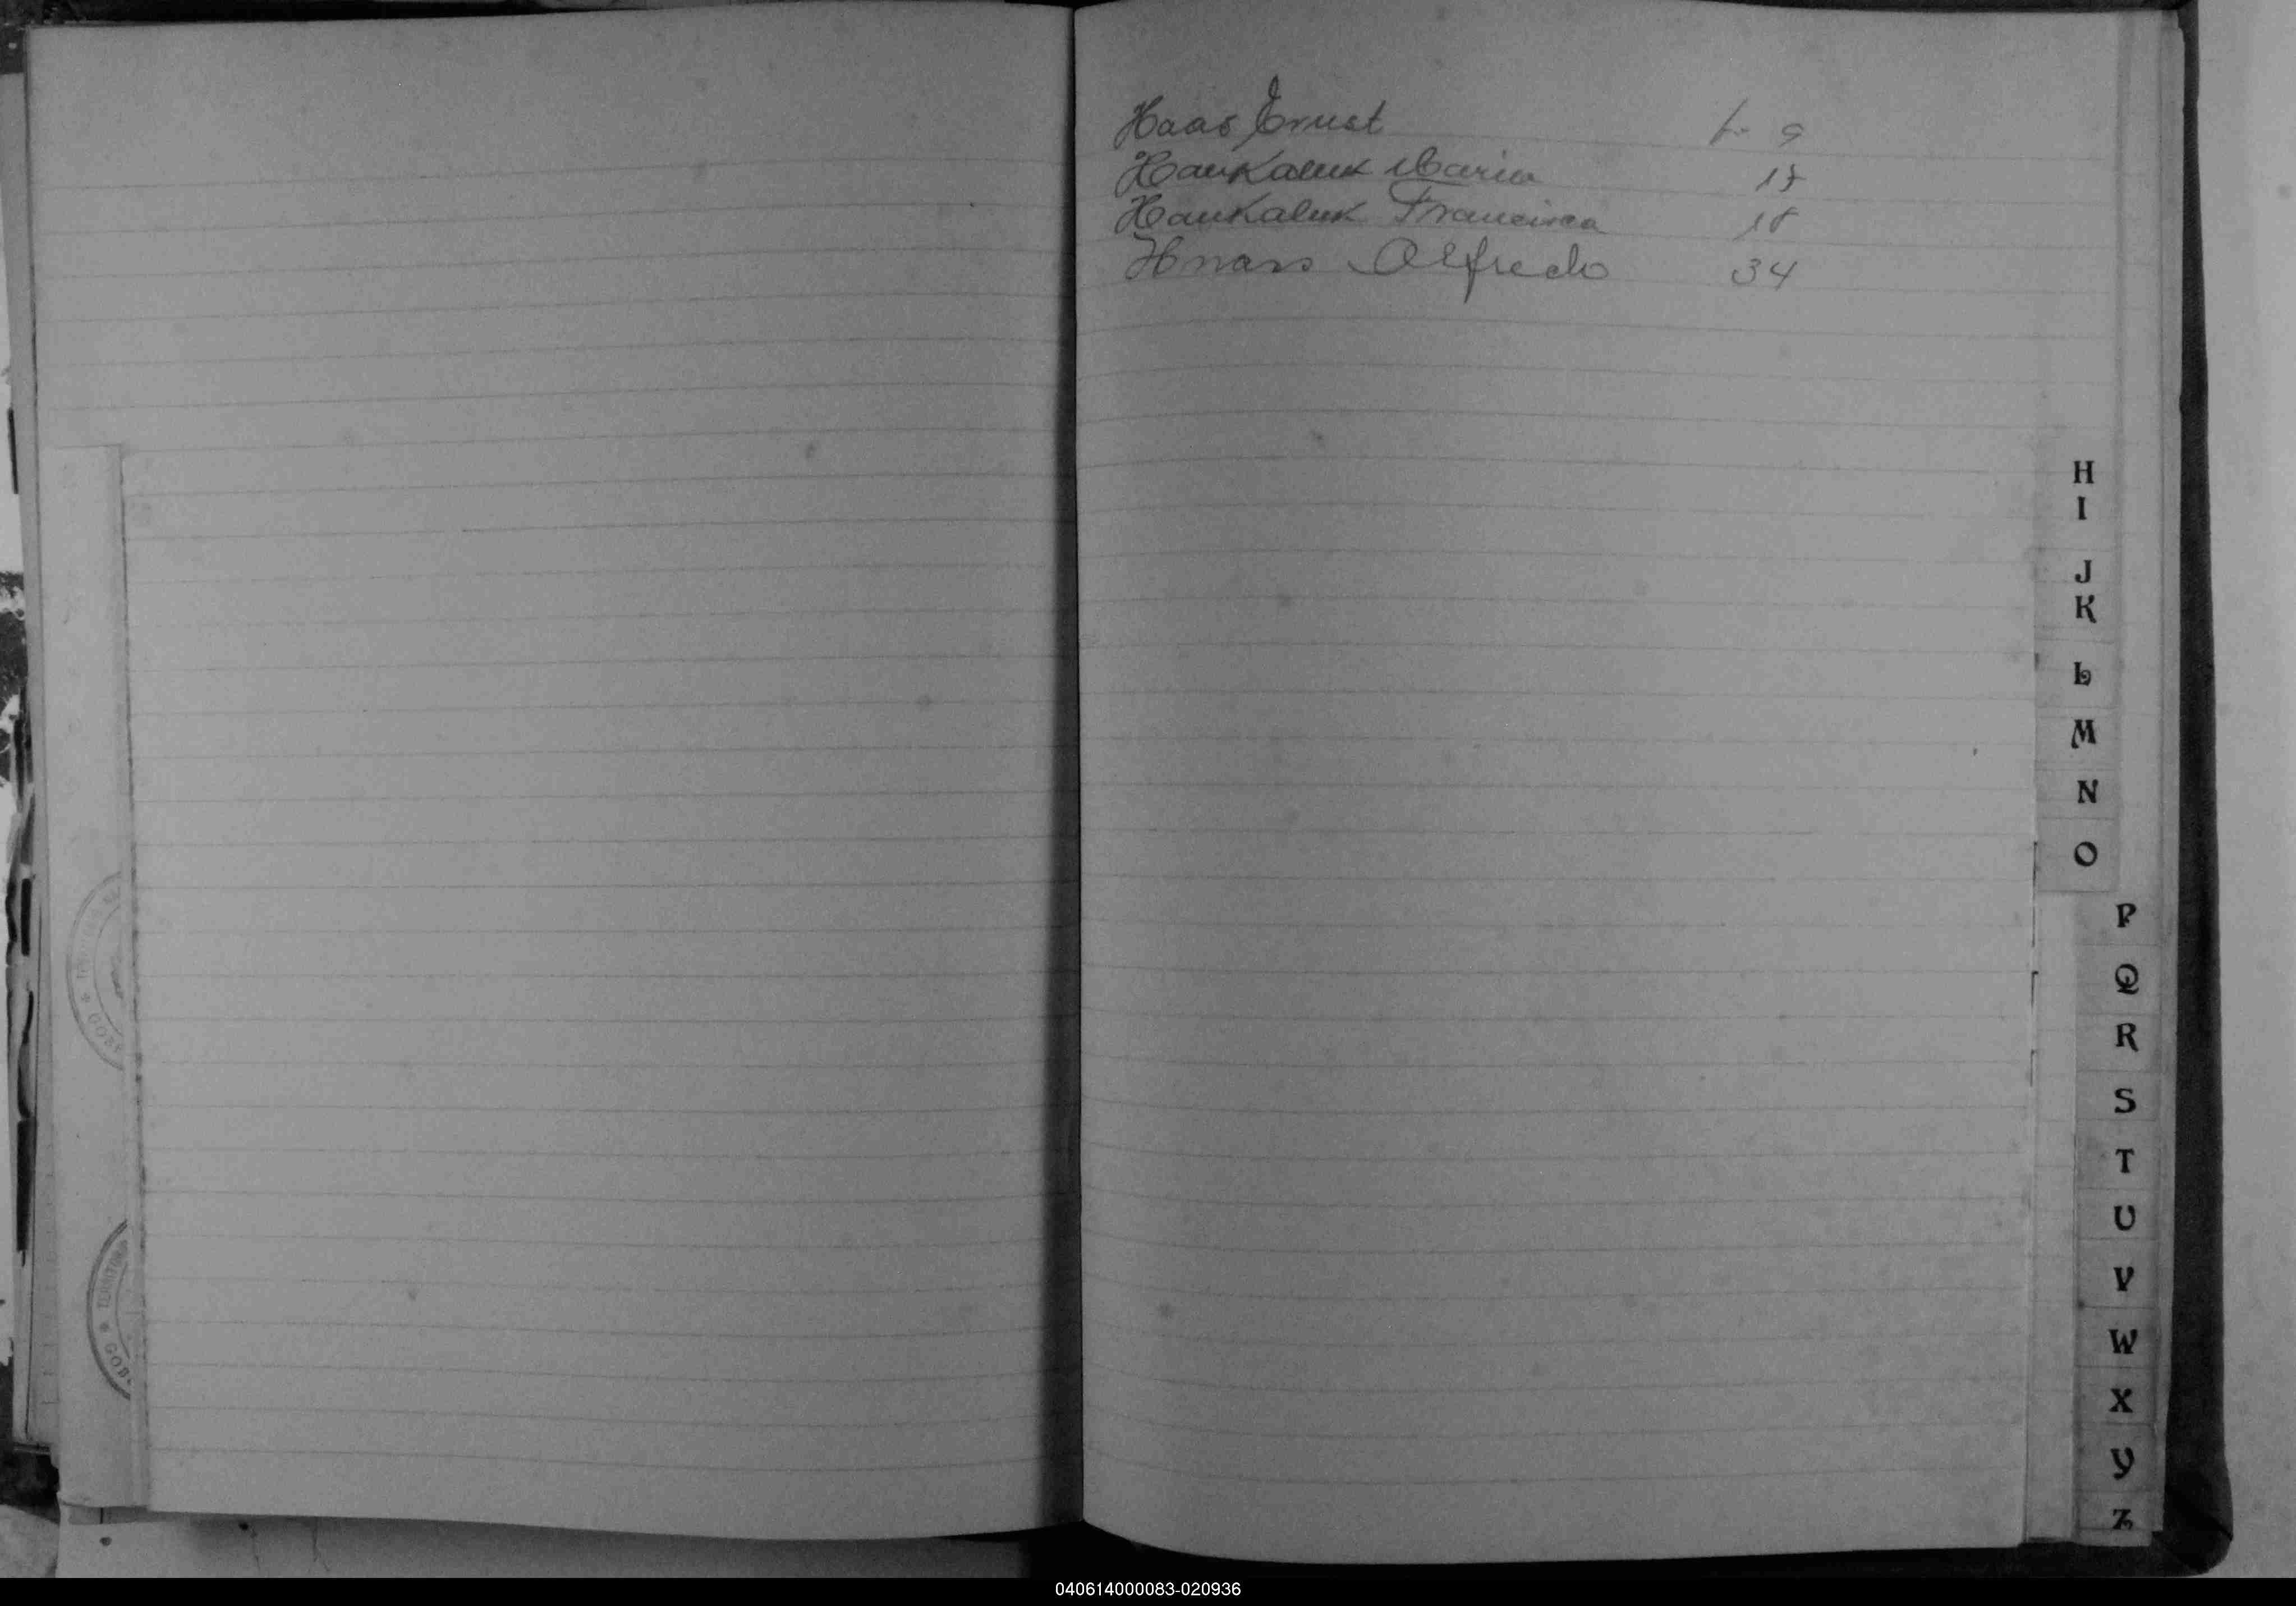 Haas Ernst f. 9
Haukaluk Maria 17
Haukaluk Francisca 18
Hnass Alfredo 34
H
I
J
K
L
M
N
O
P
Q
R
S
T
U
V
W
X
Y
Z
040614000083-020936